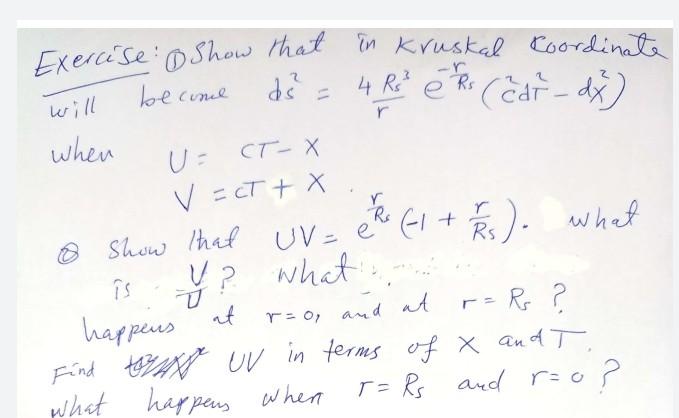 Exercise: ① Show that in Kruskal Coordinate
will become ds² = 4 Rs³/r e^(-r/Rs) (c²dT² - dX²)
when U = CT - X
V = CT + X .
② Show that UV = e^(r/Rs) (-1 + r/Rs). What
is V/U ? What
happens at r=0, and at r = Rs ?
Find UV in terms of X and T.
What happens when r = Rs and r=0 ?